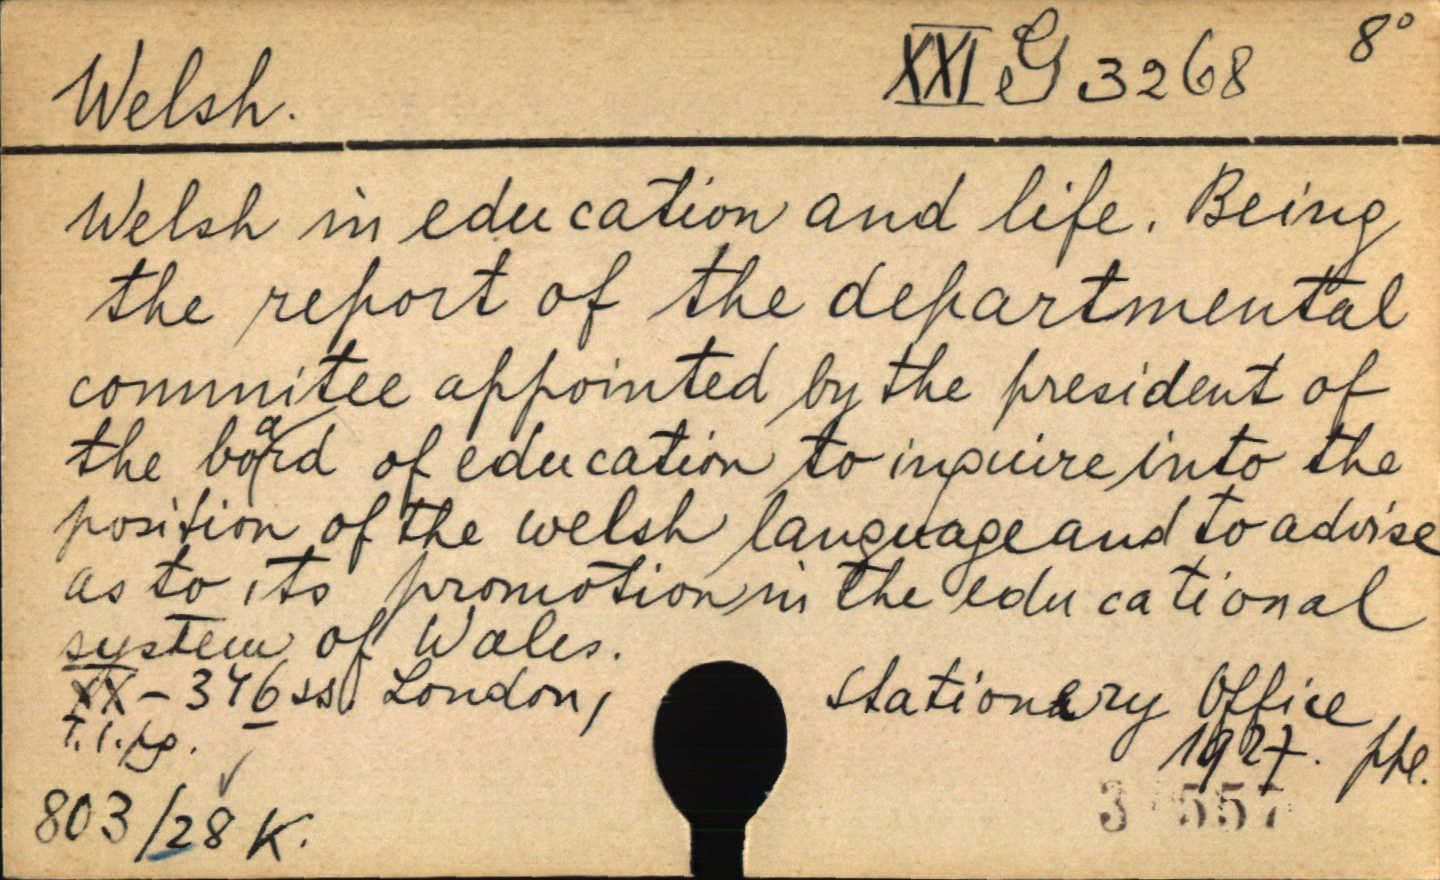 Welsh.
XXI G 3268
8°
Welsh in education and life. Being
the report of the departmental
commitee appointed by the president of
the board of education to inquire into the
position of the welsh language and to advise
as to its promotion in the educational
system of Wales.
XX - 346 ss. London, Stationery Office
1927.
803/28 K.